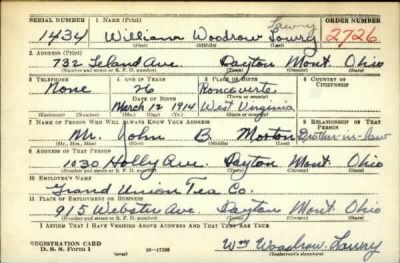 SERIAL NUMBER 1. NAME (Print) ORDER NUMBER
Lowry
1434 William Woodrow Lowry 2726
(First) (Middle) (Last)
2. ADDRESS (Print)
732 Leland Ave. Dayton Mont. Ohio
(Number and street or R. F. D. number) (Town) (County) (State)
3. TELEPHONE 4. AGE IN YEARS 5. PLACE OF BIRTH 6. COUNTRY OF CITIZENSHIP
None 26 Ronceverte
DATE OF BIRTH (Town or county)
March 12 1914 West Virginia
(Mo.) (Day) (Yr.) (State or country)
7. NAME OF PERSON WHO WILL ALWAYS KNOW YOUR ADDRESS 8. RELATIONSHIP OF THAT PERSON
Mr. John B. Morton Brother-in-law
(Mr., Mrs., Miss) (First) (Middle) (Last)
9. ADDRESS OF THAT PERSON
1030 Holly Ave. Dayton Mont. Ohio
(Number and street or R. F. D. number) (Town) (County) (State)
10. EMPLOYER'S NAME
Grand Union Tea Co.
11. PLACE OF EMPLOYMENT OR BUSINESS
915 Webster Ave. Dayton Mont. Ohio
(Number and street or R. F. D. number) (Town) (County) (State)
I AFFIRM THAT I HAVE VERIFIED ABOVE ANSWERS AND THAT THEY ARE TRUE.
REGISTRATION CARD
D. S. S. Form 1 16-17105 Wm Woodrow Lowry
(Registrant's signature)